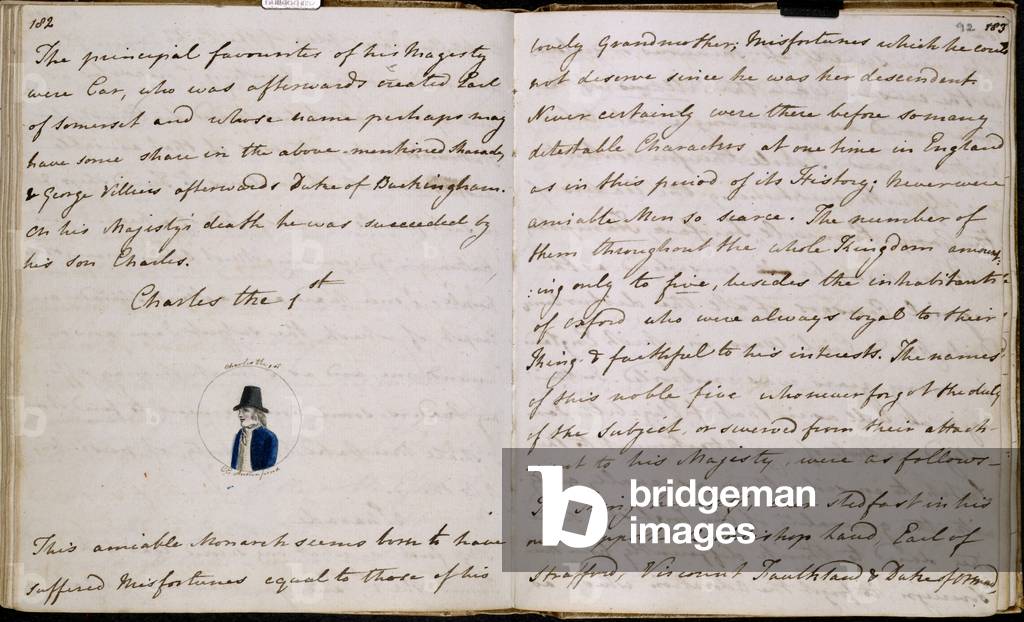 182
The principal favourites of his Magesty
were Car, who was afterwards created Earl
of Somerset and whose name perhaps may
have some share in the above-mentioned Sharade,
& George Villiers afterwards Duke of Buckingham.
On his Majestys death he was succeeded by
his son Charles.
Charles the 1st
Charles the 1st
C. Austen pinxit
This amiable Monarch seems born to have
suffered Misfortunes equal to those of his
92 183
lovely Grandmother; Misfortunes which he could
not deserve since he was her descendent.
Never certainly were there before so many
detestable Characters at one time in England
as in this period of its History; Never were
amiable Men so scarce. The number of
them throughout the whole Kingdom amount:
:ing only to five, besides the inhabitants
of Oxford who were always loyal to their
King & faithful to his interests. The names
of this noble five who never forgot the duty
of the Subject, or swerved from their attach-
to his Majesty, were as follows—
stedfast in his
Laud, Earl of
Strafford, Viscount Faulkland & Duke of Ormond,
b bridgeman
images